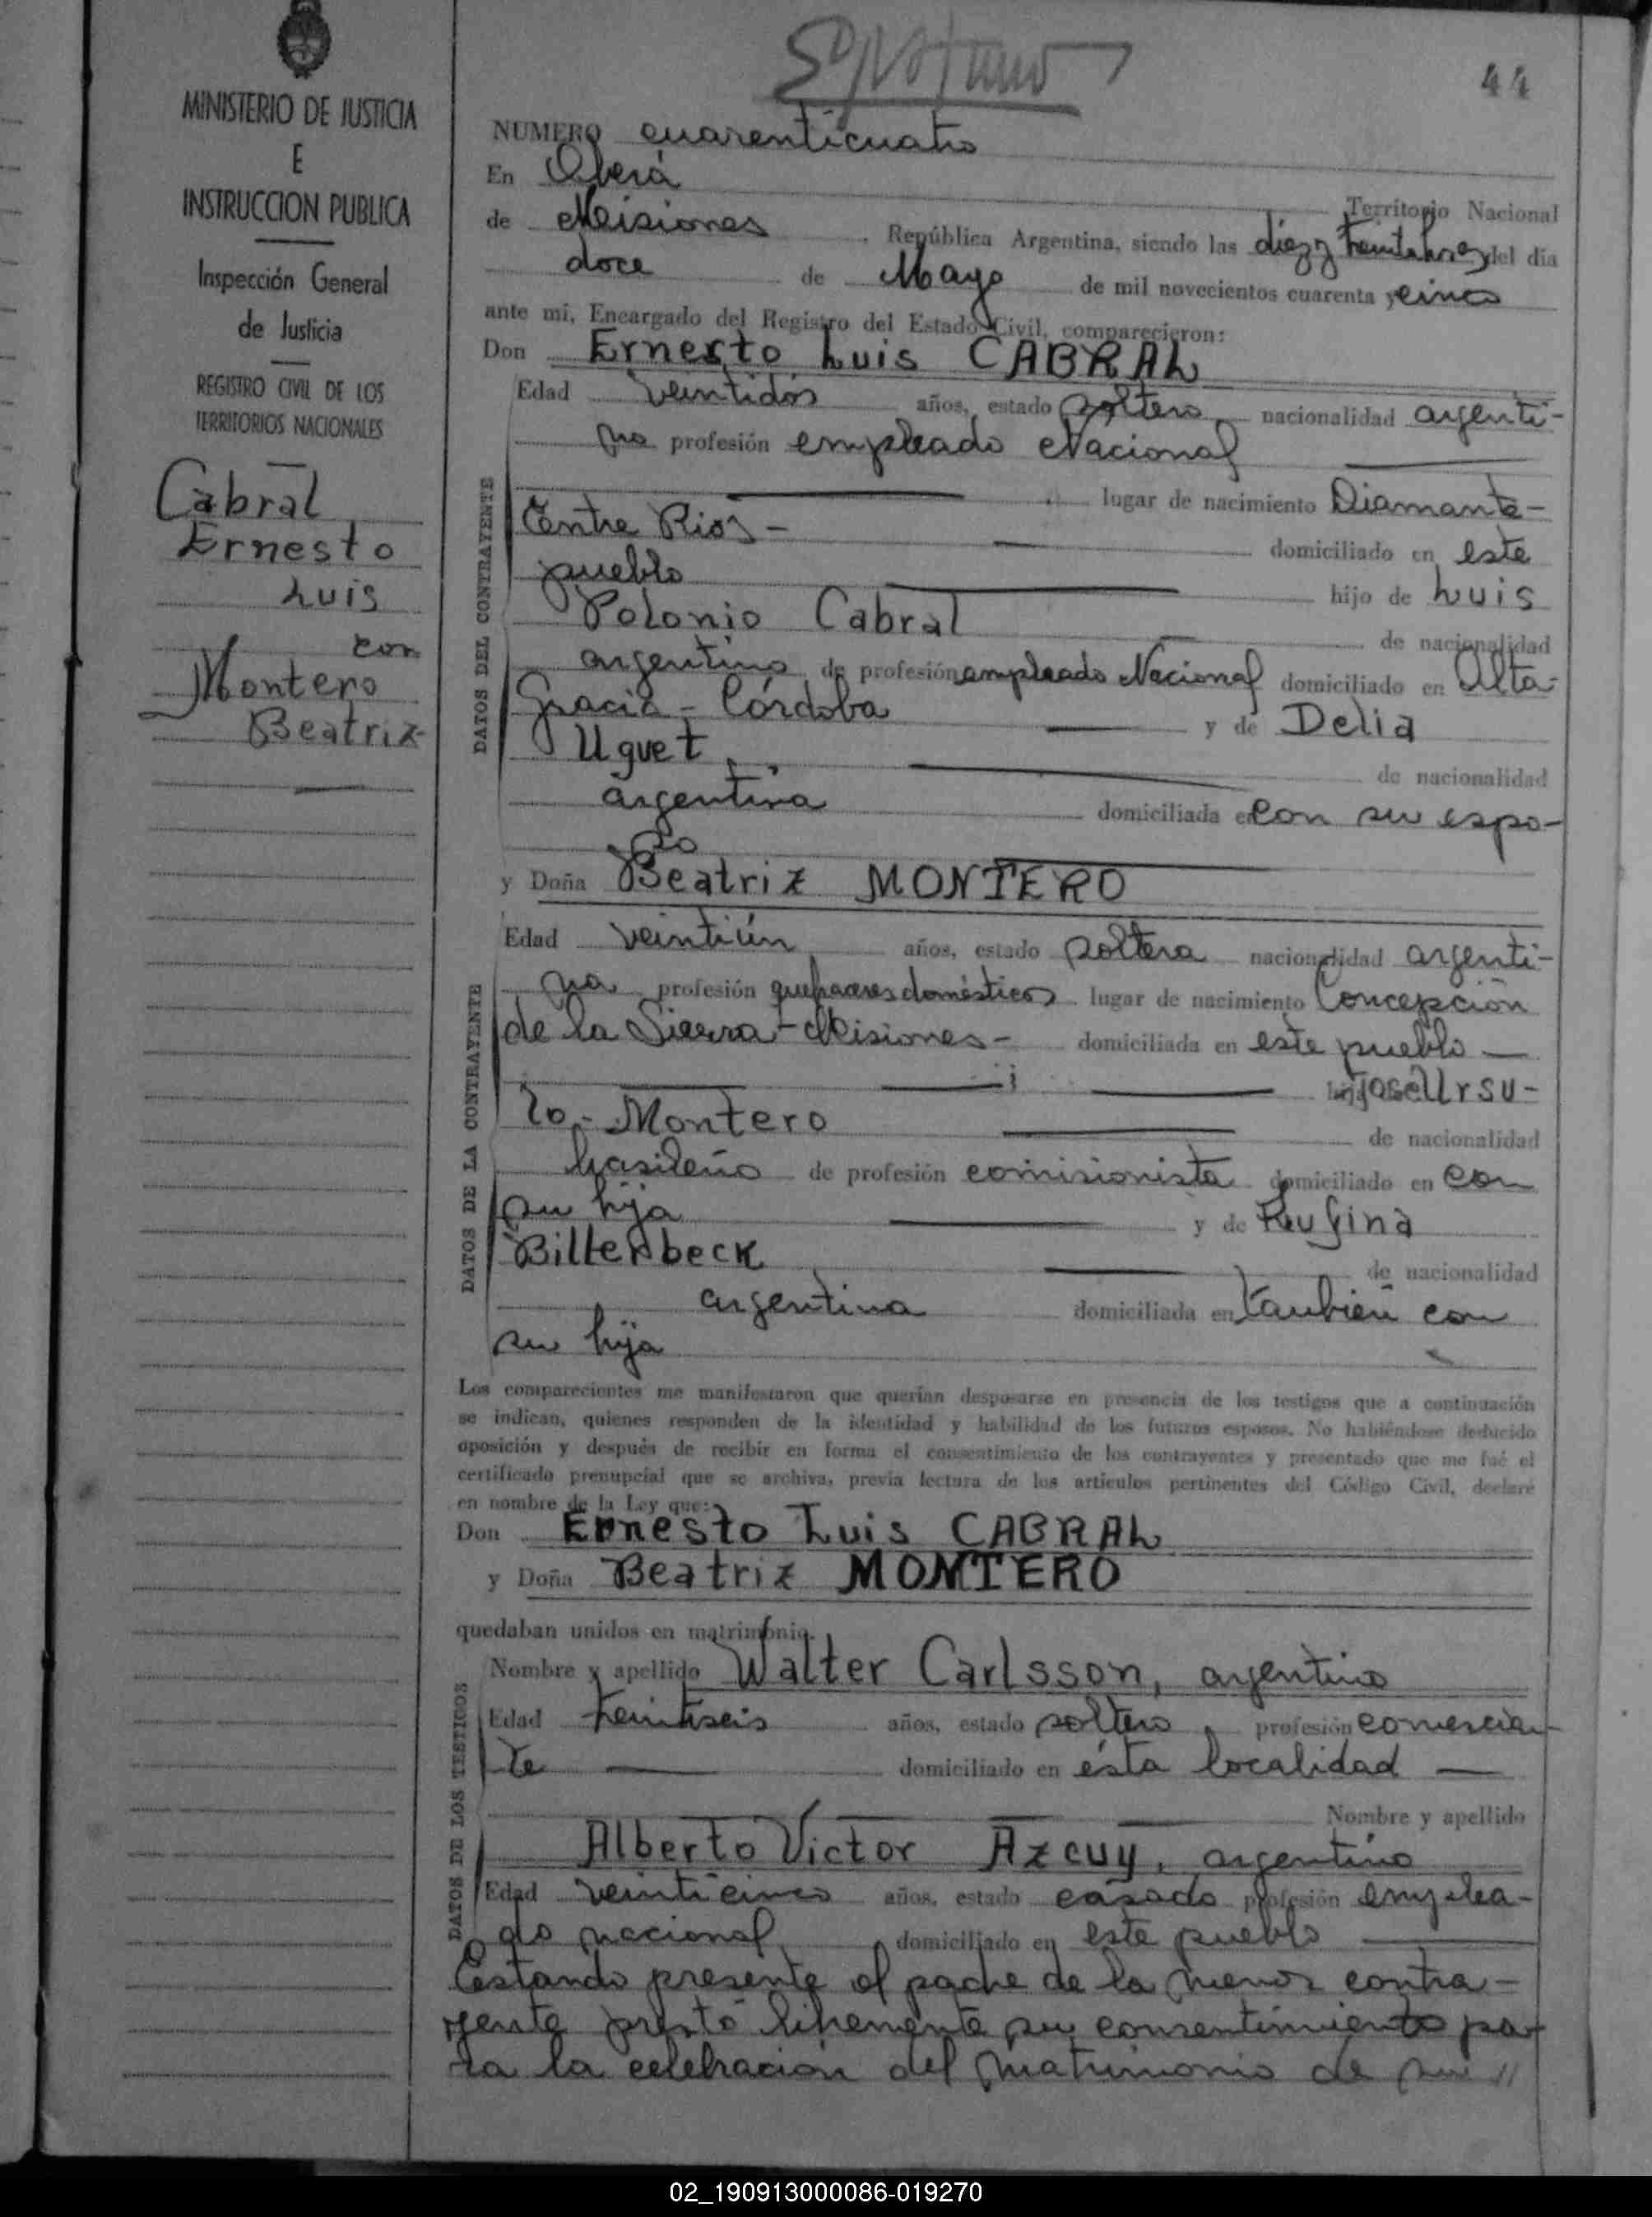 44
MINISTERIO DE JUSTICIA
E
INSTRUCCION PUBLICA
Inspección General
de Justicia
REGISTRO CIVIL DE LOS
TERRITORIOS NACIONALES
Cabral
Ernesto
Luis
con
Montero
Beatriz
NUMERO cuarenticuatro
En Oberá
Territorio Nacional
de Misiones República Argentina, siendo las diez y treinta horas del día
doce de Mayo de mil novecientos cuarenta y cinco
ante mi, Encargado del Registro del Estado Civil, comparecieron:
Don Ernesto Luis CABRAL
DATOS DEL CONTRAYENTE
Edad veintidós años, estado soltero nacionalidad argenti-
no profesión empleado Nacional
lugar de nacimiento Diamante-
Entre Rios- domiciliado en este
pueblo hijo de Luis
Polonio Cabral de nacionalidad
argentino de profesión empleado Nacional domiciliado en Alta
Gracia - Córdoba y de Delia
Uguet, de nacionalidad
argentina domiciliada en con su espo-
so
y Doña Beatriz MONTERO
DATOS DE LA CONTRAYENTE
Edad veintiún años, estado soltera nacionalidad argenti-
na profesión quehaceres domésticos lugar de nacimiento Concepción
de la Sierra - Misiones- domiciliada en este pueblo
hija José Ursu-
lo- Montero de nacionalidad
brasileño de profesión comisionista domiciliado en con
su hija y de Rufina
Billenbeck de nacionalidad
argentina domiciliada en también con
su hija
Los comparecientes me manifestaron que querían desposarse en presencia de los testigos que a continuación
se indican, quienes responden de la identidad y habilidad de los futuros esposos. No habiéndose deducido
oposición y después de recibir en forma el consentimiento de los contrayentes y presentado que me fué el
certificado prenupcial que se archiva, previa lectura de los artículos pertinentes del Código Civil, declaré
en nombre de la Ley que:
Don Ernesto Luis CABRAL
y Doña Beatriz MONTERO
quedaban unidos en matrimonio.
DATOS DE LOS TESTIGOS
Nombre y apellido Walter Carlsson, argentino
Edad treintiseis años, estado soltero, profesión comercian-
te domiciliado en ésta localidad
Nombre y apellido
Alberto Victor Azcuy, argentino
Edad veinticinco años, estado casado profesión emplea-
do nacional domiciliado en este pueblo
Estando presente el padre de la menor contra-
yente prestó libremente su consentimiento pa-
ra la celebración del matrimonio de su //
02_190913000086-019270